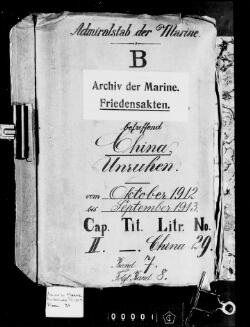 Admiralstab der Marine.
B
Archiv der Marine.
Friedensakten.
betreffend
China
Unruhen.
vom Oktober 1912
bis September 1913
Cap. Tit. Litr. No.
II. — China 29.
Band 7.
Folgt Band 8.
00001